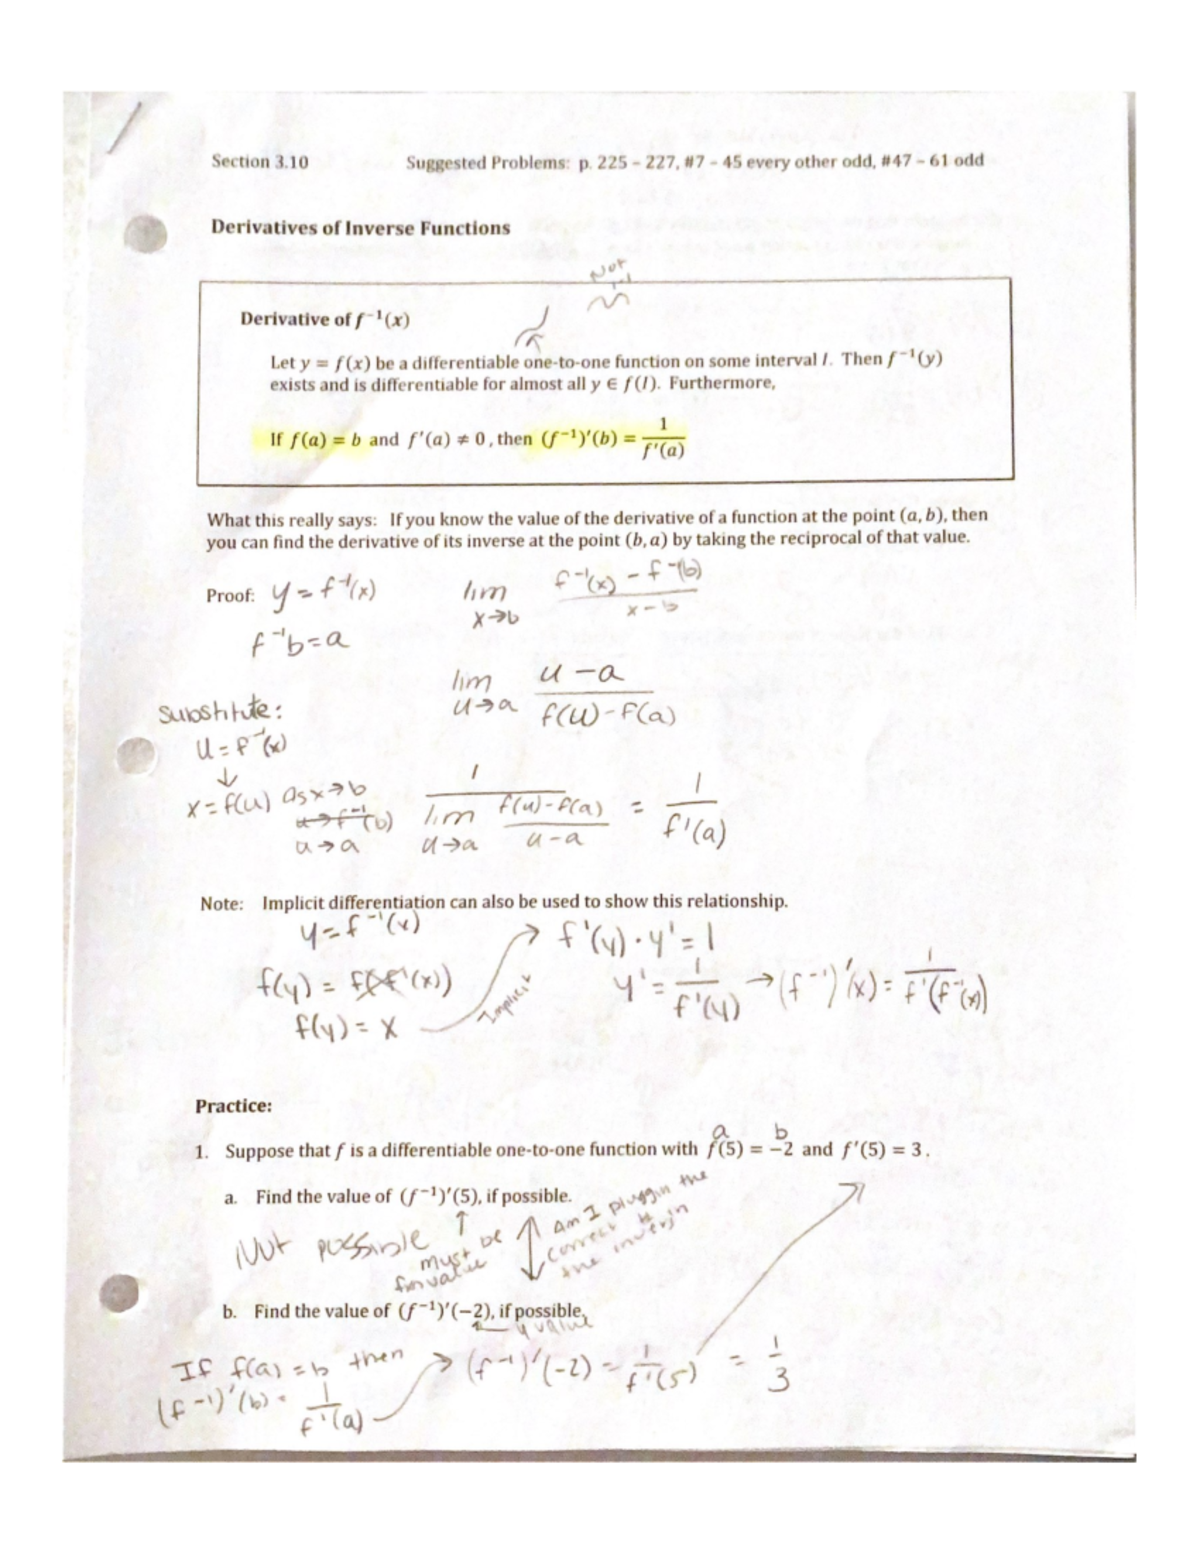 Section 3.10 Suggested Problems: p. 225 – 227, #7 – 45 every other odd, #47 – 61 odd
Derivatives of Inverse Functions
Not
1-1
Derivative of f⁻¹(x)
Let y = f(x) be a differentiable one-to-one function on some interval I. Then f⁻¹(y)
exists and is differentiable for almost all y ∈ f(I). Furthermore,
If f(a) = b and f'(a) ≠ 0, then (f⁻¹)'(b) = 1/f'(a)
What this really says: If you know the value of the derivative of a function at the point (a, b), then
you can find the derivative of its inverse at the point (b, a) by taking the reciprocal of that value.
Proof: y = f⁻¹(x) lim x→b (f⁻¹(x) − f⁻¹(b))/(x − b)
f⁻¹b = a
lim u→a (u − a)/(f(u) − f(a))
Substitute:
u = f⁻¹(x)
↓
x = f(u) as x→b
u→f⁻¹(b)
u→a
1/(lim u→a (f(u) − f(a))/(u − a)) = 1/f'(a)
Note: Implicit differentiation can also be used to show this relationship.
y = f⁻¹(x)
f(y) = f(f⁻¹(x))
f(y) = x
Implicit
f'(y) · y' = 1
y' = 1/f'(y) → (f⁻¹)'(x) = 1/f'(f⁻¹(x))
Practice:
a b
1. Suppose that f is a differentiable one-to-one function with f(5) = −2 and f'(5) = 3.
a. Find the value of (f⁻¹)'(5), if possible.
Not possible
↑
must be
value
Am I pluggin the
correct #
the
b. Find the value of (f⁻¹)'(−2), if possible.
y value
If f(a) = b then
(f⁻¹)'(b) = 1/f'(a)
→ (f⁻¹)'(−2) = 1/f'(5) = 1/3